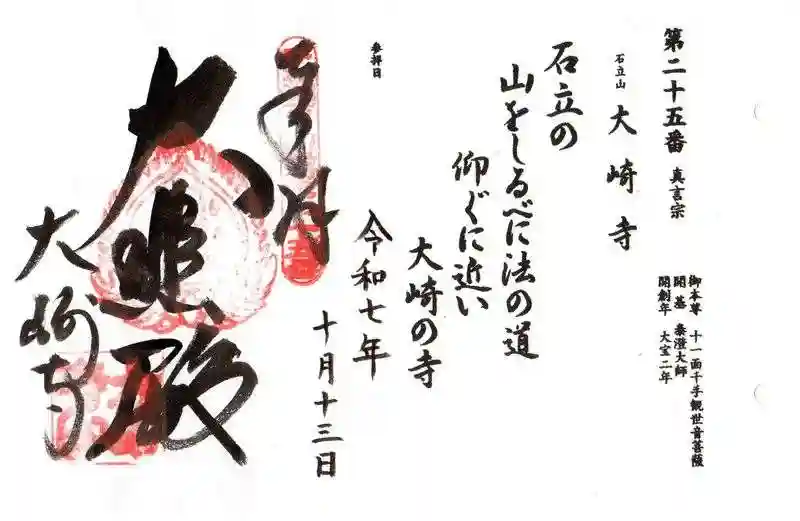 第二十五番 真言宗
御本尊 十一面千手観世音菩薩
開基 泰澄大師
開創年 大宝二年
石立山 大崎寺
石立の
山をしるべに法の道
仰ぐに近い
大崎の寺
参拝日
令和七年
十月十三日
奉拝
大悲殿
大崎寺